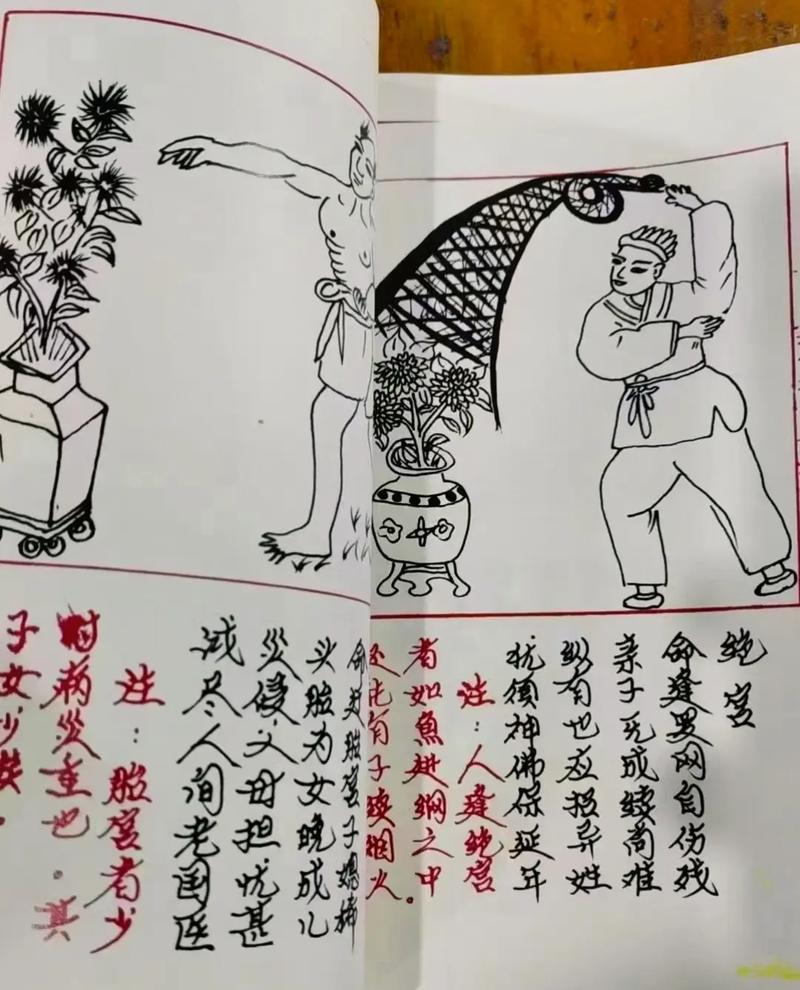 绝宫
命逢罗网自伤残
亲子无成续尚难
纵有也应招异姓
犹须神佛保延年
注：人逢绝宫
者如魚进網之中。
有子续烟火
命逢胎宫子媳稀
头胎为女晚成儿
災侵父母担忧甚
减尽人间老国医
注：胎宫者少
时病災重也。其
子女少